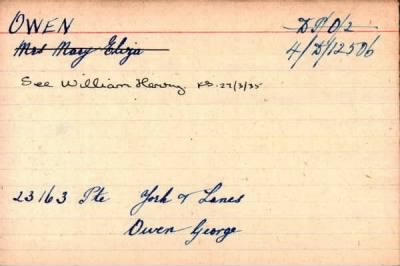 OWEN DP O/2
Mrs Mary Eliza 4/D/12506
See William Henry KS. 27/3/35
23163 Pte York & Lancs
Owen George